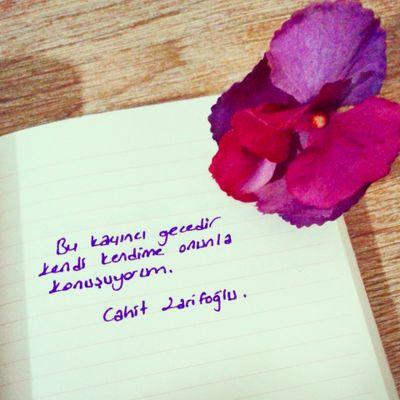 Bu kaçıncı gecedir
kendi kendime onunla
konuşuyorum.
Cahit Zarifoğlu.